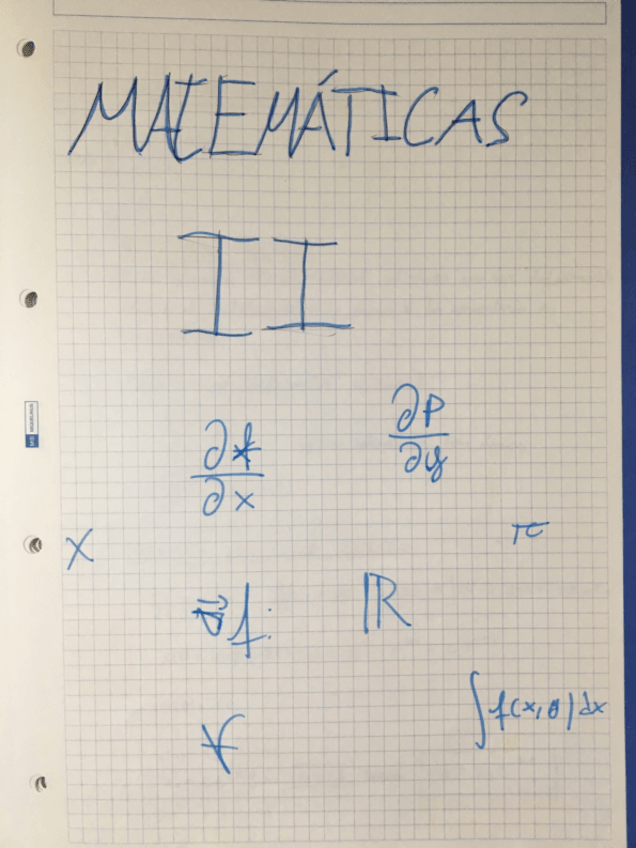 MATEMÁTICAS
II
∂P/∂y
∂f/∂x
π
X
∇⃗f
ℝ
∫f(x,θ)dx